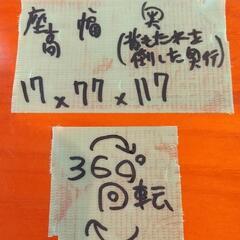 座高 幅 奥
(背もたれを倒した奥行)
17 x 77 x 117
360°
回転